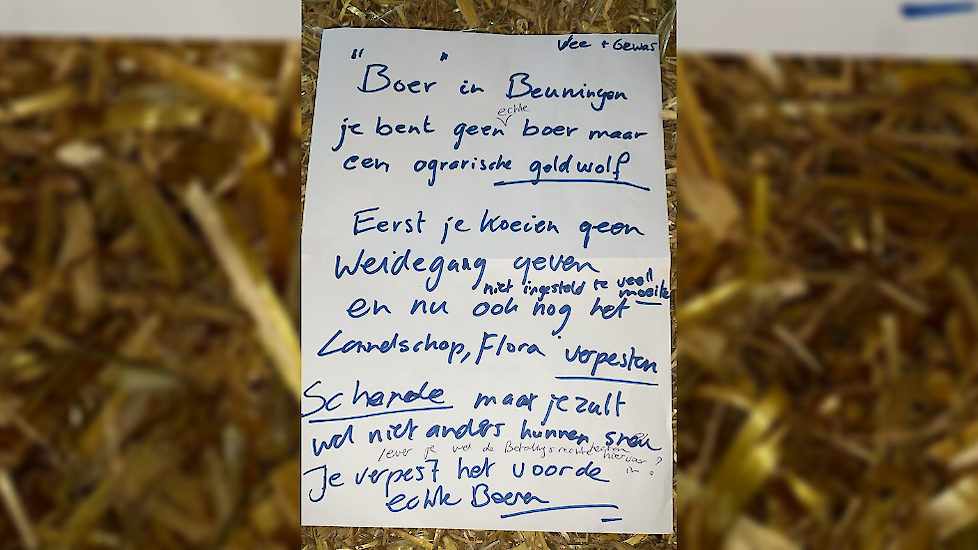 Vee + Gewas
"Boer" in Beuningen
echte
je bent geen boer maar
een agrarische geldwolf
Eerst je koeien geen
Weidegang geven
niet ingesteld te veel"
moeite
en nu ook nog het
Landschap, Flora verpesten
Schande maar je zult
wel niet anders kunnen
lever je wel de Betalingsrechten
hiervoor ?
in
Je verpest het voor de
echte Boeren